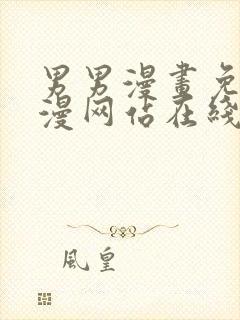 男男漫畫免
漫网站在綫
風皇